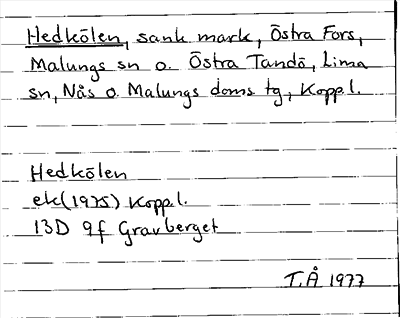 Hedkölen, sank mark, Östra Fors,
Malungs sn o. Östra Tandö, Lima
sn, Nås o Malungs doms tg, Kopp l.
Hedkölen
ek(1975) Kopp l.
13D 9f Gravberget
T.Å 1977